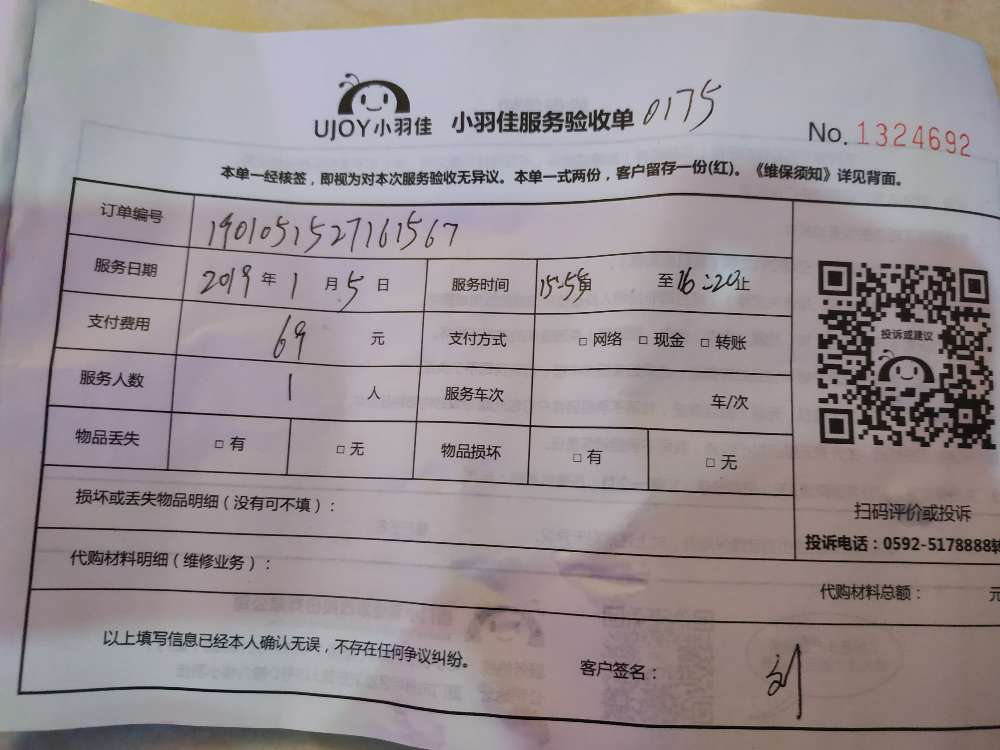 UJOY小羽佳 小羽佳服务验收单 0175
No. 1324692
本单一经核签，即视为对本次服务验收无异议。本单一式两份，客户留存一份(红)。《维保须知》详见背面。
订单编号 1901051527161567
服务日期 2019 年 1 月 5 日 服务时间 15:55 至 16:20 止
支付费用 69 元 支付方式 □ 网络 □ 现金 □ 转账
服务人数 1 人 服务车次 车/次
物品丢失 □ 有 □ 无 物品损坏 □ 有 □ 无
投诉或建议
扫码评价或投诉
投诉电话：0592-5178888转
损坏或丢失物品明细（没有可不填）：
代购材料明细（维修业务）：
代购材料总额： 元
以上填写信息已经本人确认无误，不存在任何争议纠纷。
客户签名： 刘